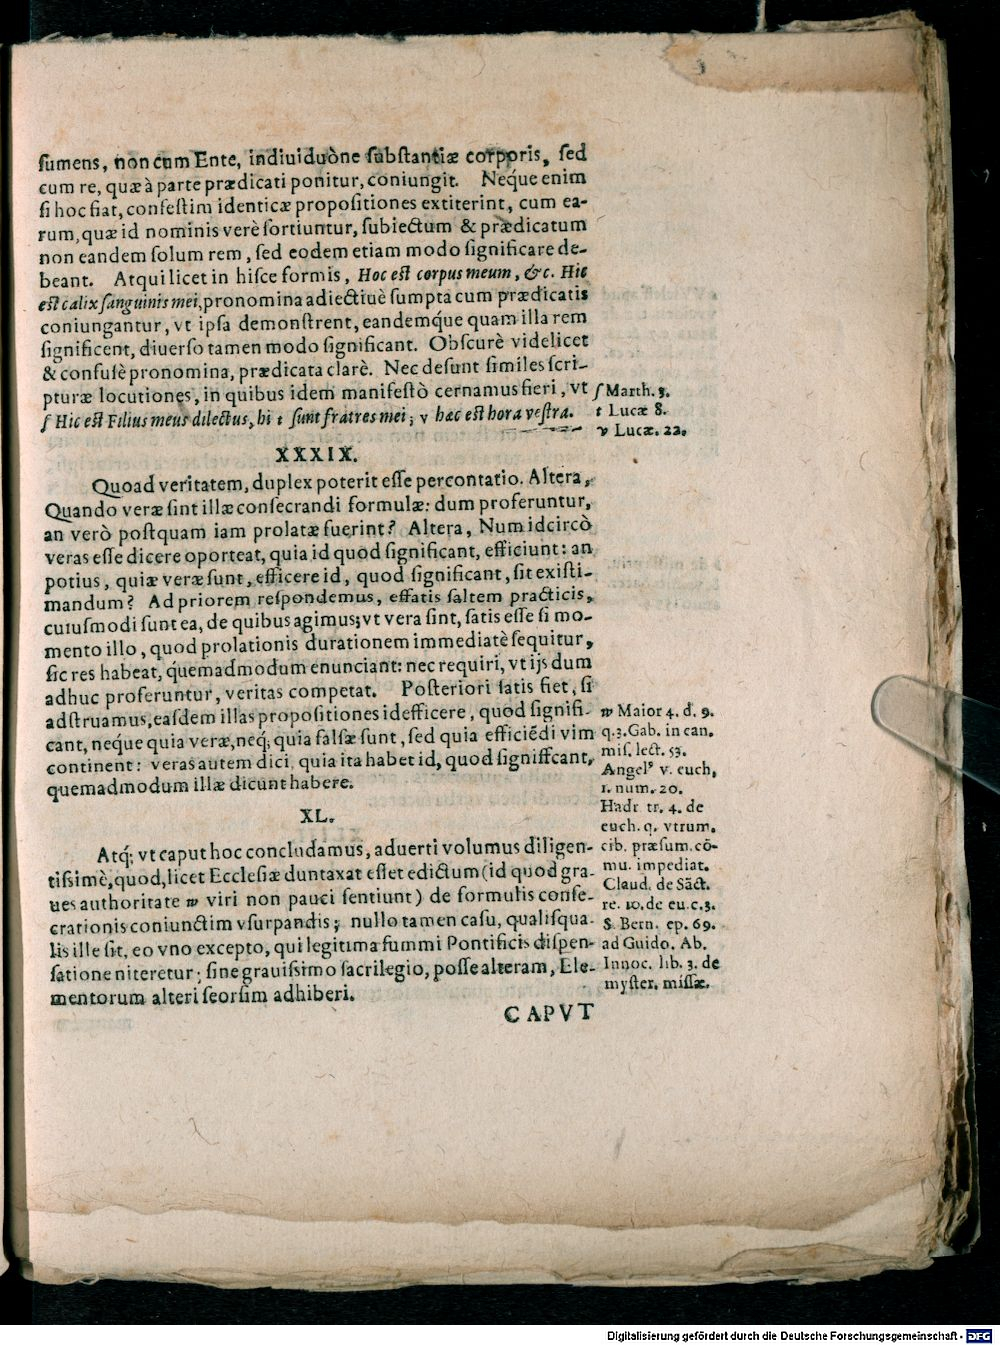 ſumens, non cum Ente, indiuiduòne ſubſtantiæ corporis, ſed
cum re, quæ à parte prædicati ponitur, coniungit. Neq́ue enim
ſi hoc fiat, confeſtim identicæ propoſitiones extiterint, cum ea-
rum, quæ id nominis verè ſortiuntur, ſubiectum & prædicatum
non eandem ſolum rem, ſed eodem etiam modo ſignificare de-
beant. Atqui licet in hiſce formis, Hoc eſt corpus meum, &c. Hic
eſt calix ſanguinis mei, pronomina adiectiuè ſumpta cum prædicatis
coniungantur, vt ipſa demonſtrent, eandemq́ue quam illa rem
ſignificent, diuerſo tamen modo ſignificant. Obſcurè videlicet
& confuſè pronomina, prædicata clarè. Nec deſunt ſimiles ſcri-
pturæ locutiones, in quibus idem manifeſtò cernamus fieri, vt
ſ Hic eſt Filius meus dilectus, hi t ſunt fratres mei; v hæc eſt hora veſtra.
ſ Matth. 3.
t Lucæ 8.
v Lucæ. 22.
XXXIX.
Quoad veritatem, duplex poterit eſſe percontatio. Altera,
Quando veræ ſint illæ conſecrandi formulæ: dum proferuntur,
an verò poſtquam iam prolatæ fuerint? Altera, Num idcircò
veras eſſe dicere oporteat, quia id quod ſignificant, efficiunt: an
potius, quia veræ ſunt, efficere id, quod ſignificant, ſit exiſti-
mandum? Ad priorem reſpondemus, effatis ſaltem practicis,
cuiuſmodi ſunt ea, de quibus agimus; vt vera ſint, ſatis eſſe ſi mo-
mento illo, quod prolationis durationem immediatè ſequitur,
ſic res habeat, q́uemadmodum enunciant: nec requiri, vt ijs dum
adhuc proferuntur, veritas competat. Poſteriori ſatis fiet, ſi
adſtruamus, eaſdem illas propoſitiones id efficere, quod ſignifi-
cant, neq́ue quia veræ, neq́; quia falſæ ſunt, ſed quia efficiēdi vim
continent: veras autem dici, quia ita habet id, quod ſignificant,
quemadmodum illæ dicunt habere.
XL.
Atq́; vt caput hoc concludamus, aduerti volumus diligen-
tiſsimè, quod, licet Eccleſiæ duntaxat eſſet edictum (id quod gra-
ues authoritate w viri non pauci ſentiunt) de formulis conſe-
crationis coniunctim vſurpandis; nullo tamen caſu, qualiſqua-
lis ille ſit, eo vno excepto, qui legitima ſummi Pontificis diſpen-
ſatione niteretur; ſine grauiſsimo ſacrilegio, poſſe alteram, Ele-
mentorum alteri ſeorſim adhiberi.
w Maior 4. d. 9.
q. 3. Gab. in can.
miſ. lect. 53.
Angelꝰ v. euch,
1. num. 20.
Hadr. tr. 4. de
euch. q. vtrum.
cib. præſum. cō-
mu. impediat.
Claud. de Sāct.
re. 10. de eu. c. 3.
S. Bern. ep. 69.
ad Guido. Ab.
Innoc. lib. 3. de
myſter. miſſæ.
CAPVT
Digitalisierung gefördert durch die Deutsche Forschungsgemeinschaft - DFG